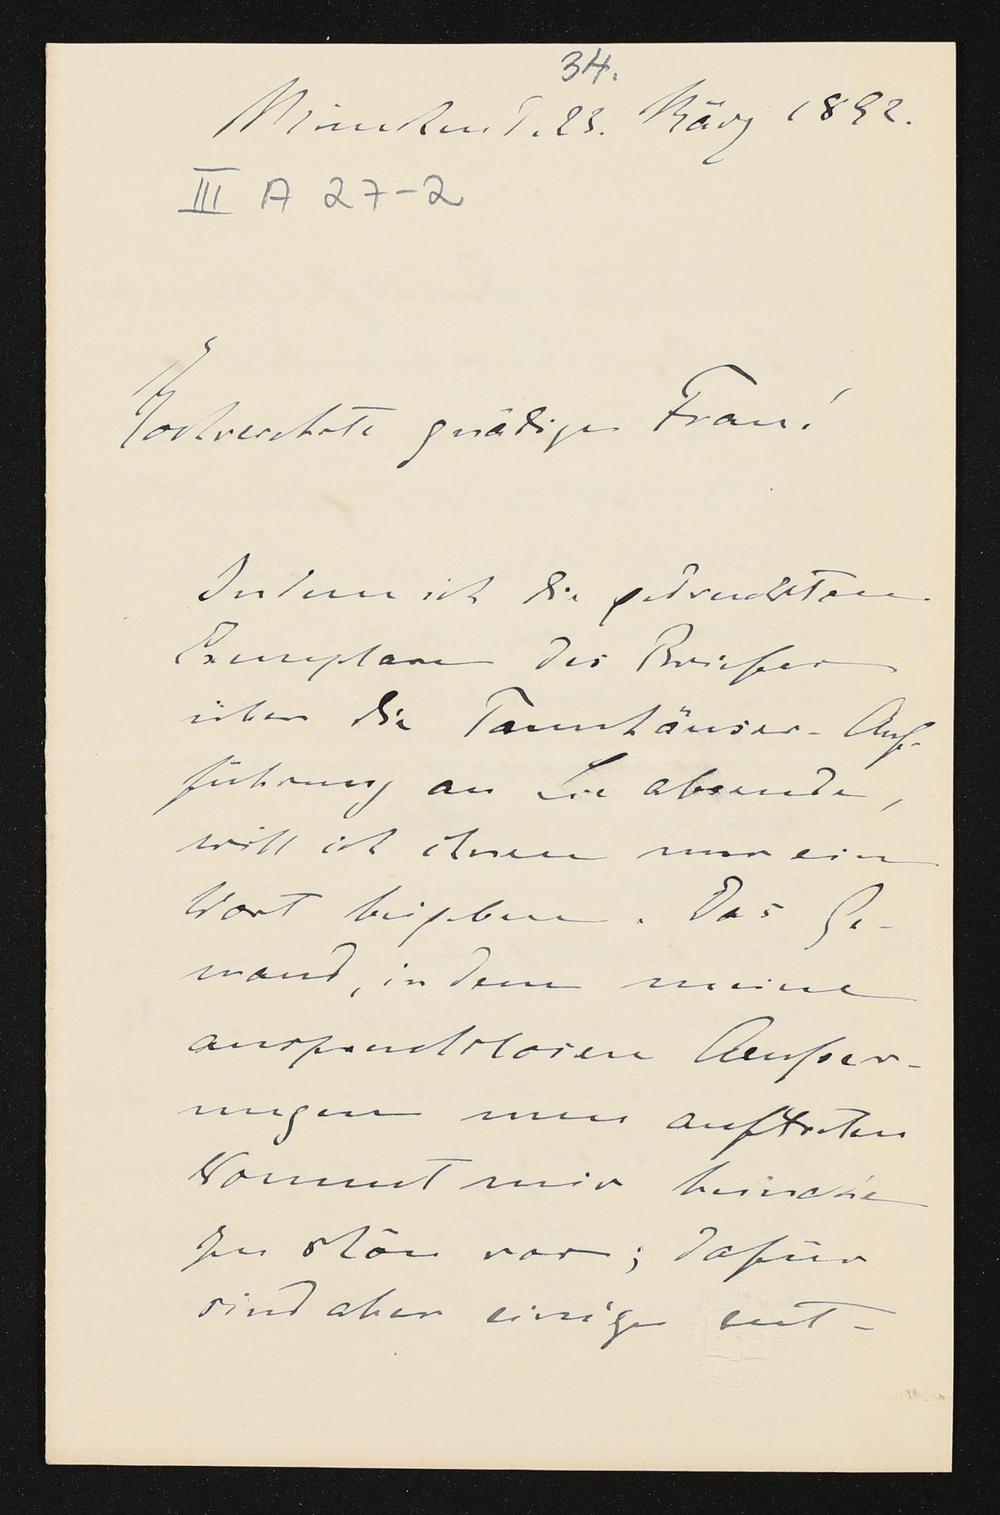 34.
München d. 23. März 1892.
III A 27-2
Hochverehrte gnädige Frau!
Indem ich die gedruckten
Exemplare des Briefes
über die Tannhäuser-Auf-
führung an Sie absende,
will ich ihnen nur ein
Wort beigeben. Das Ge-
wand, in dem meine
anspruchslosen Aeusser-
ungen nun auftreten
kommt mir beinahe
zu schön vor; dafür
sind aber einige ent-